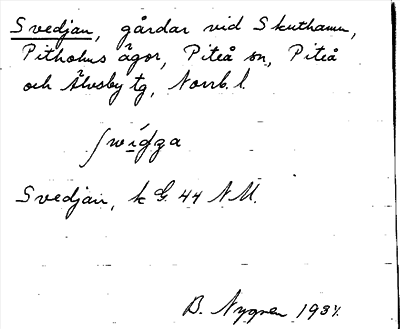 Svedjan, gårdar vid Skuthamn,
Pitholms ägor, Piteå sn, Piteå
och Älvsby tg, Norrb. l.
Svedjan, k G. 44 N M.
B. Nygren 193